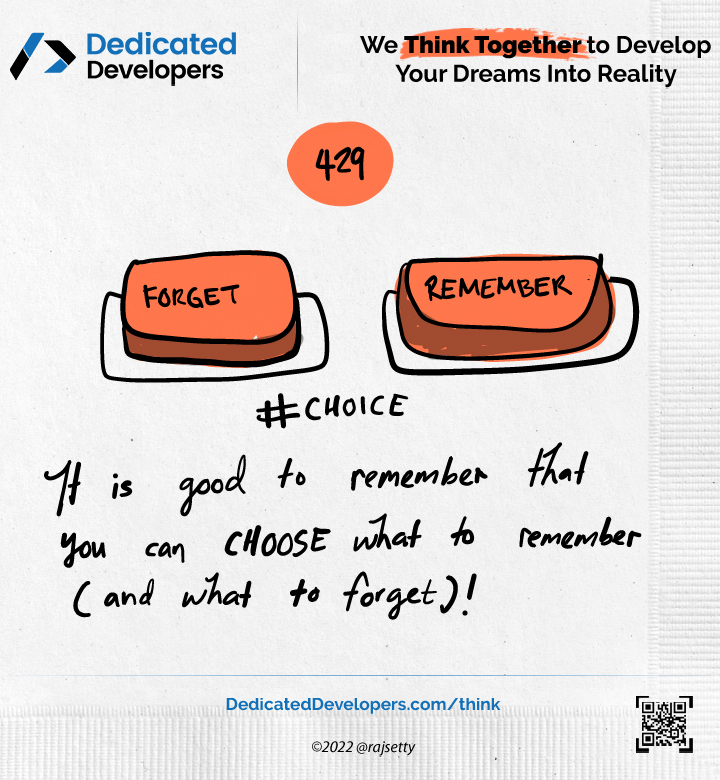 Dedicated
Developers
We Think Together to Develop
Your Dreams Into Reality
429
FORGET
REMEMBER
#CHOICE
It is good to remember that
you can CHOOSE what to remember
(and what to forget)!
DedicatedDevelopers.com/think
©2022 @rajsetty